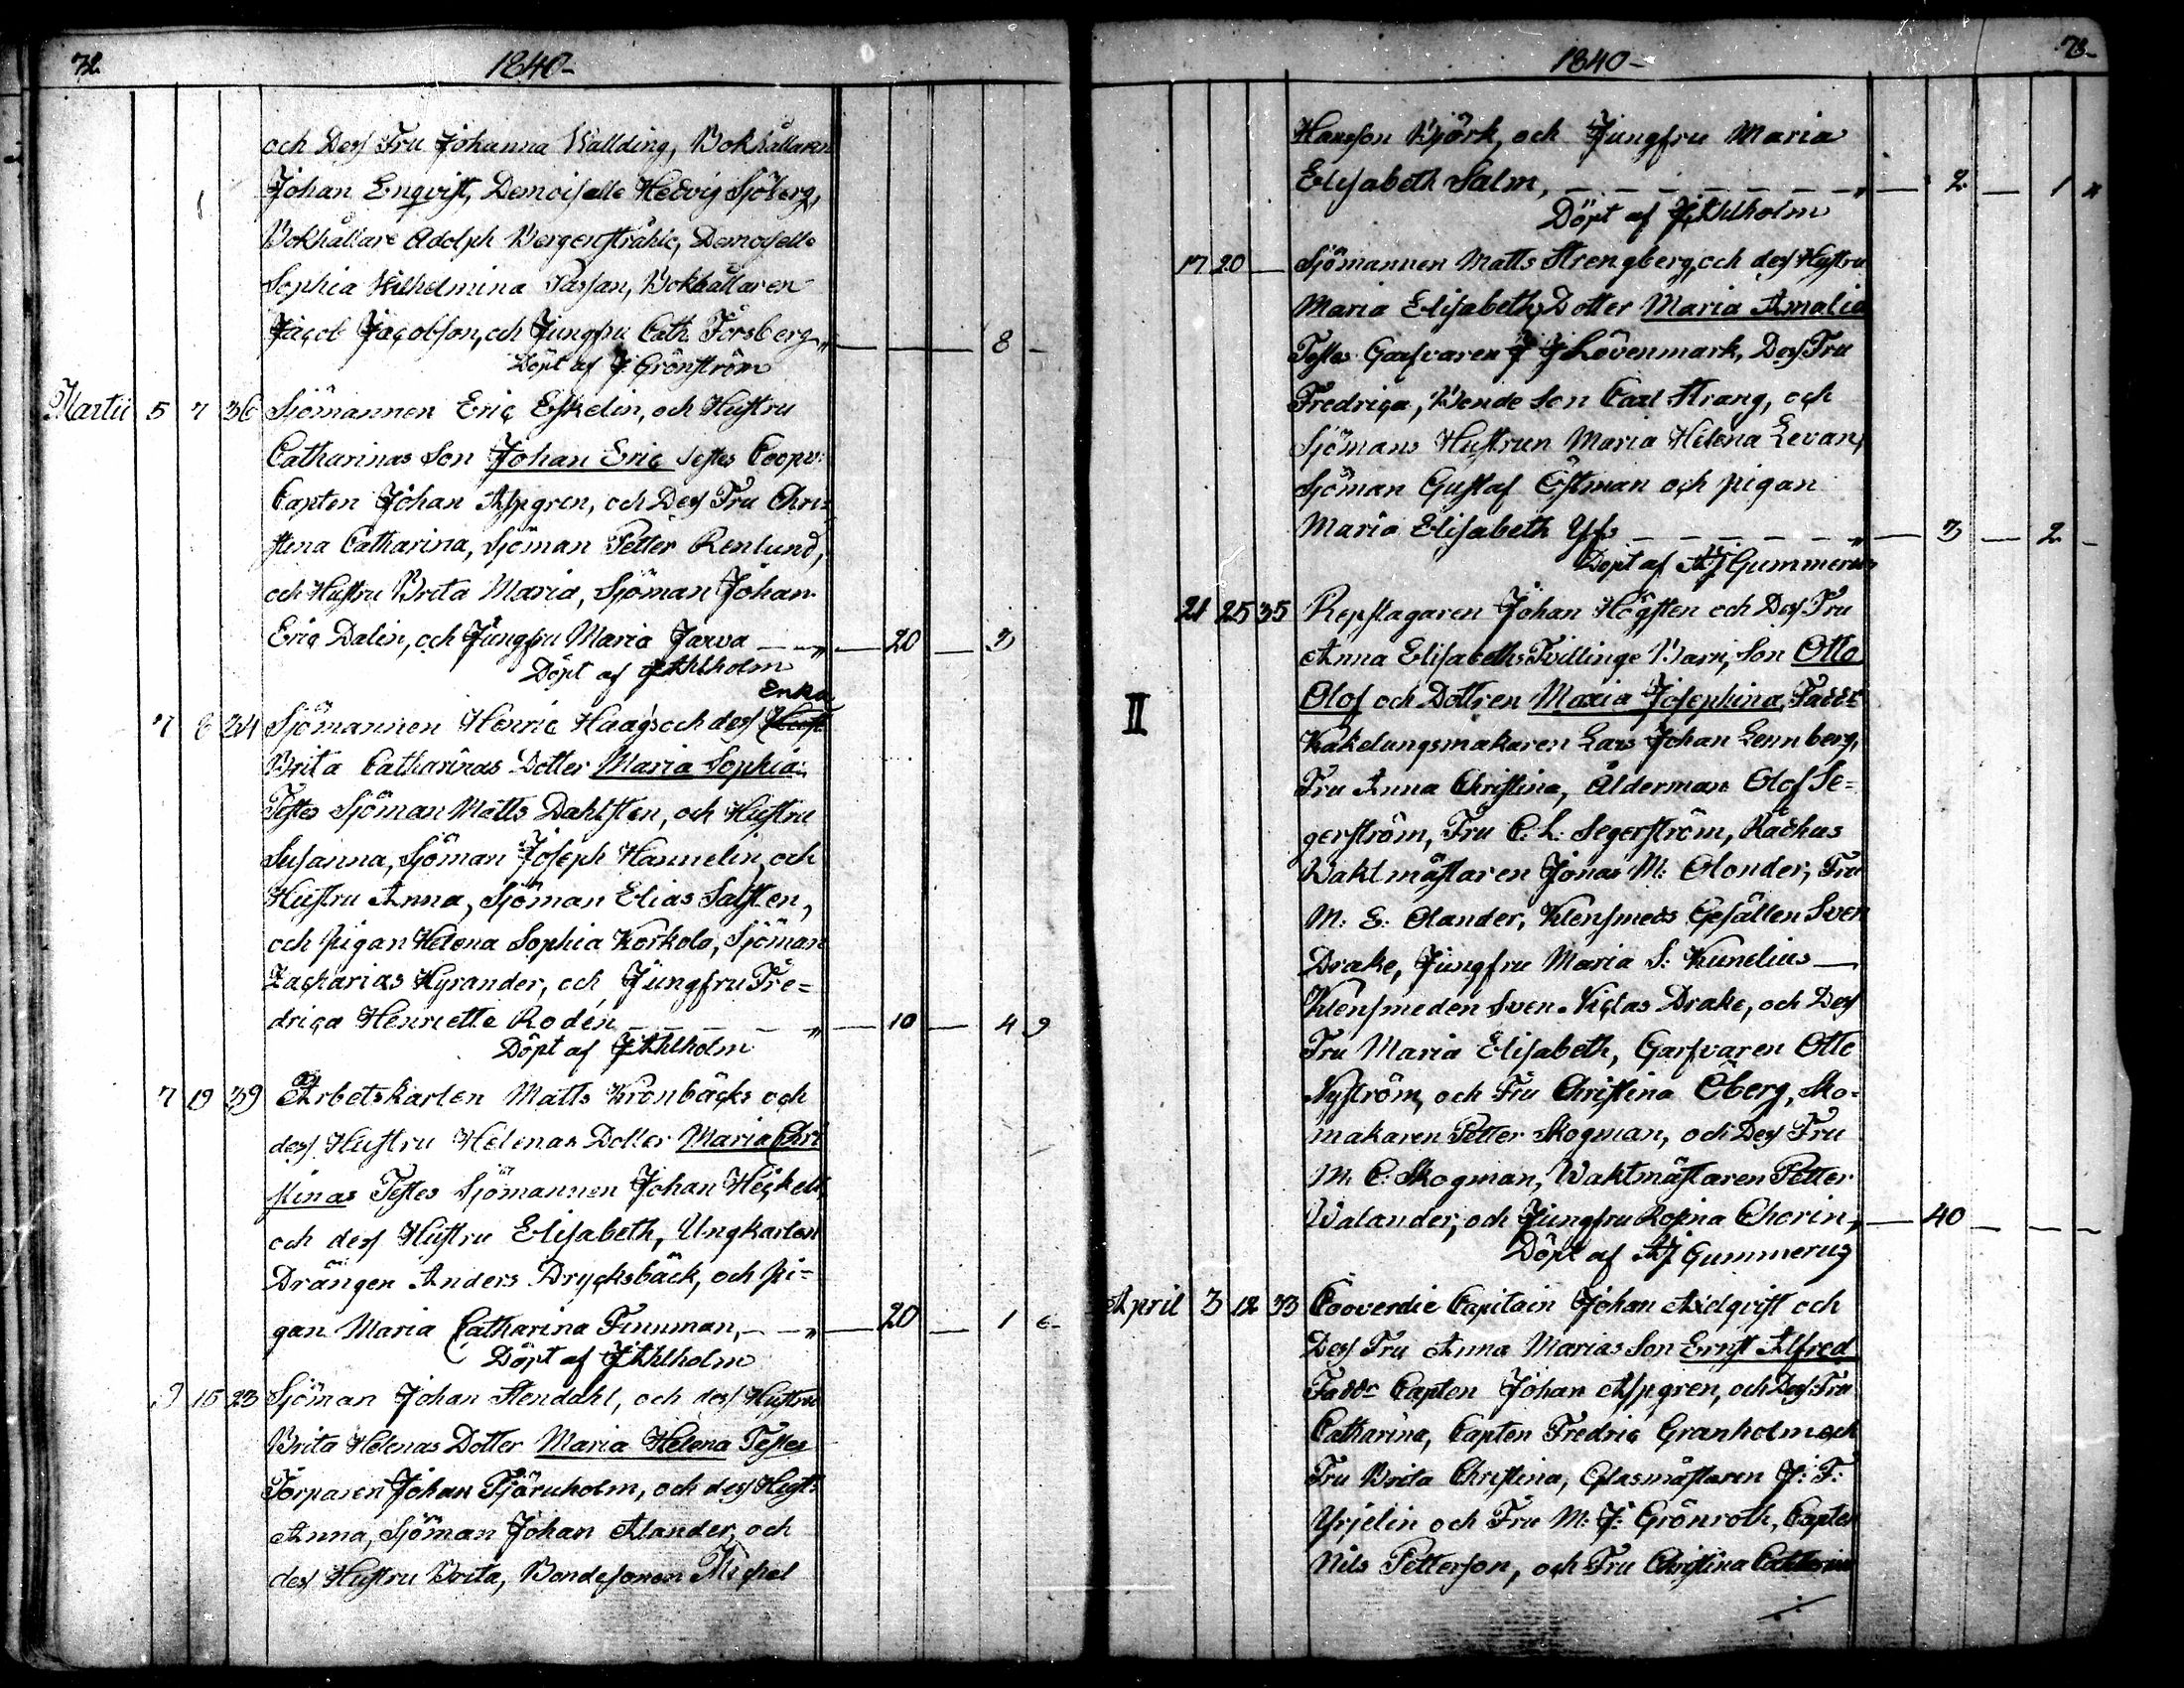 72.
1840-
och Dess Fru Johanna Wallding, Bokhållaren
Johan Enqvist, Demoiselle Hedvig Sjöberg,
Bokhållare Adolph Bergenstråhle, Demoiselle
Sophia Wilhelmina Passan, Bokhållaren
Jacob Jacobson, och Jungfru Cath. Forsberg „ — 8 -
Döpt af J Grönström
Martii 5 7 36 Sjömannen Eric Eskelin, och Hustru
Catharinas Son Johan Eric Testes Coopv:
Capten Johan Aspgren, och Dess Fru Chri-
stina Catharina, Sjöman Petter Renlund,
och Hustru Brita Maria, Sjöman Johan
Eric Dalin, och Jungfru Maria Jarva — „ — 20 — 3
Döpt af J Ahlholm
Enka
7 8 24 Sjömannen Henric Haags och dess
Brita Catharinas Dotter Maria Sophia
Testes Sjöman Matts Dahlsten, och Hustru
Susanna, Sjöman Joseph Hannelin, och
Hustru Anna, Sjöman Elias Salsten,
och pigan Helena Sophia Korkolo, Sjöman
Zacharias Hyrander, och Jungfru Fre=
drica Henriette Rodén — „ — 10 — 4 9
Döpt af J Ahlholm
7 19 39 Arbetskarlen Matts Kronbäcks och
dess Hustru Helenas Dotter Maria Chri
stinas Testes Sjömannen Johan Heickell
och dess Hustru Elisabeth, Ungkarlen
Drängen Anders Drycksbäck, och pi=
gan Maria Catharina Finnman, — „ — 20 — 1 6-
Döpt af J Ahlholm
9 15 23 Sjöman Johan Stendahl, och dess Hustru
Brita Helenas Dotter Maria Helena Testes
Torparen Johan Tjäruholm, och dess Hust:
Anna, Sjöman Johan Alander, och
dess Hustru Brita, Bondesonen Michel
1840-
73-
Hansson Björk, och Jungfru Maria
Elisabeth Salm, — „ — 2 — 1 „
Döpt af J Ahlholm
17 20 — Sjömannen Matts Strengberg, och dess Hustru
Maria Elisabeths Dotter Maria Amalia
Testes Garfvaren J J Lövenmark, Dess Fru
Fredrica, Bonde Son Carl Strang, och
Sjömans Hustrun Maria Helena Levan,
Sjöman Gustaf Östman och pigan
Maria Elisabeth — „ — 3 — 2 -
Döpt af AJ Gummerus
21 25 35 Repslagaren Johan Högsten och Dess Fru
Anna Elisabeths Tvillinge Barn, Son Otto
II
Olof och Dottren Maria Josephina, Faddr
Kakelungsmakaren Lars Johan Lennberg,
Fru Anna Christina, Ålderman Olof Se=
gerström, Fru C. L. Segerström, Rådhus
Waktmästaren Jonas M: Olonder, Fru
M: E: Olander, Klensmeds Gesällen Sven
Drake, Jungfru Maria S: Kunelius —
Klensmeden Sven Niclas Drake, och Dess
Fru Maria Elisabeth, Garfvaren Otto
Nyström, och Fru Christina Öberg, Sko-
makaren Petter Skogman, och Dess Fru
M. C. Skogman, Waktmästaren Petter
Walander, och Jungfru Rosina Chorin, — 40 — — —
Döpt af AJ Gummerus
April 3 12 33 Cooverdie Capitain Johan Axelqvist och
Dess Fru Anna Marias Son Ernst Alfred
Faddr Capten Johan Aspgren, och Dess Fru
Catharina, Capten Fredric Granholm och
Fru Brita Christina, Glasmästaren J: F:
Yrjelin och Fru M: J: Grönroth, Capten
Nils Petterson, och Fru Christina Catharina